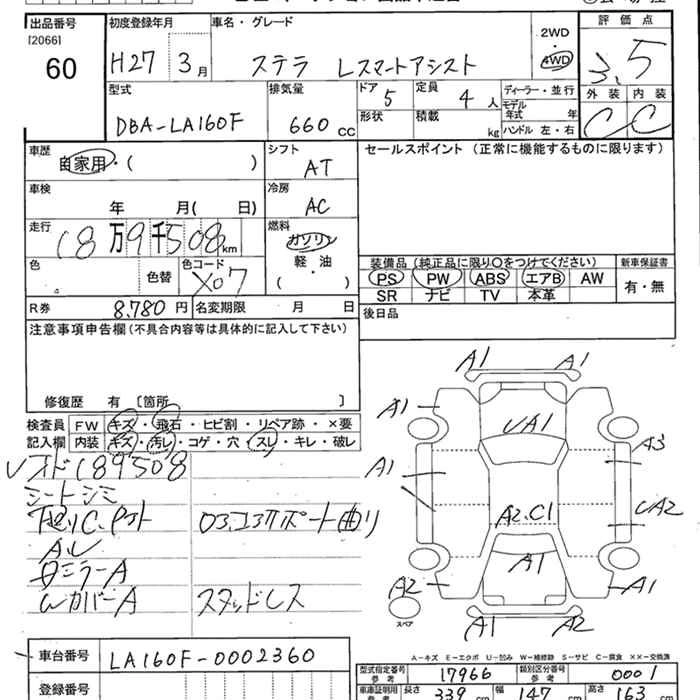 出品番号
[2066]
60
初度登録年月
H27 3月
車名・グレード
ステラ Lスマートアシスト
2WD
4WD
評価点
3.5
外装 内装
C C
型式
DBA-LA160F
排気量
660 cc
ドア
5
形状
定員
4人
積載
kg
ディーラー・並行
モデル
年式 年
ハンドル 左・右
車歴
自家用・( )
シフト
AT
車検
年 月( 日)
冷房
AC
走行
18万9千508km
燃料
ガソリン
軽・油
( )
色
色替
色コード
X07
R券
8.780円
名変期限 月 日
セールスポイント (正常に機能するものに限ります)
装備品 (純正品に限り○をつけてください)
新車保証書
PS PW ABS エアB AW
SR ナビ TV 本革
有・無
後日品
注意事項申告欄 (不具合内容等は具体的に記入して下さい)
修復歴 有 [箇所 ]
検査員
記入欄
FW キズ・飛石・ヒビ割・リペア跡・×要
内装 キズ・汚レ・コゲ・穴・スレ・キレ・破レ
オド189508
シートシミ
スタッドレス
A1 A1
A1
A1
A3
A1
A2.C1
A2
A1
A2
A1
A1 A2
スペア
A-キズ E-エクボ U-凹み W-補修跡 S-サビ C-腐食 ××-交換済
車台番号
LA160F-0002360
登録番号
型式指定番号
参考
17966
類別区分番号
参考
0001
車庫証明用
参考
長さ
339
幅
147
高さ
163 cm